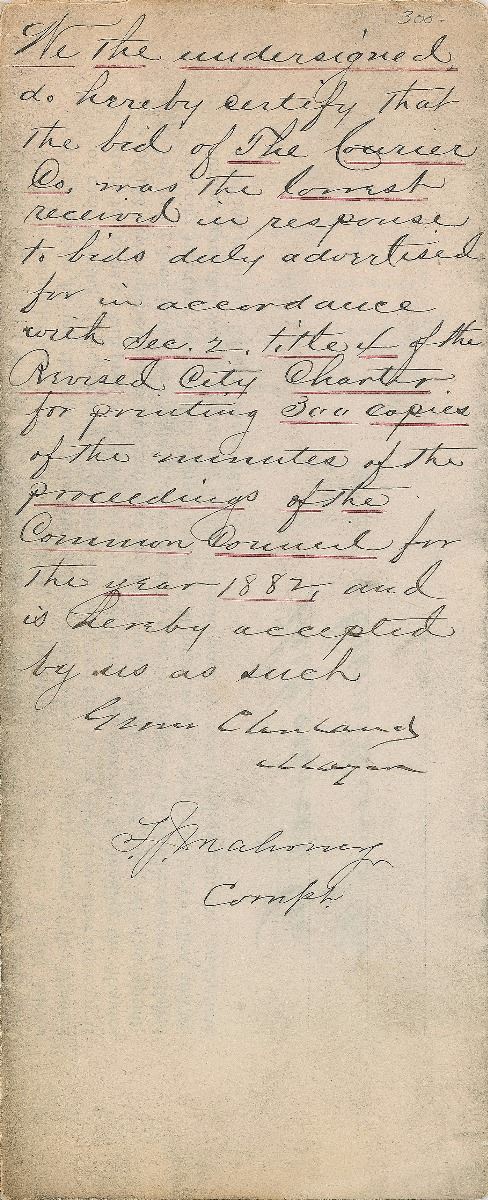 300-
We the undersigned,
do hereby certify that
the bid of The Courier
Co. was the lowest
received in response
to bids duly advertised
for in accordance
with Sec. 2, title 4 of the
Revised City Charter
for printing 300 copies
of the minutes of the
proceedings of the
Common Council for
the year 1882, and
is hereby accepted
by us as such
Grover Cleveland
Mayor
T.J. Mahoney
Compt.